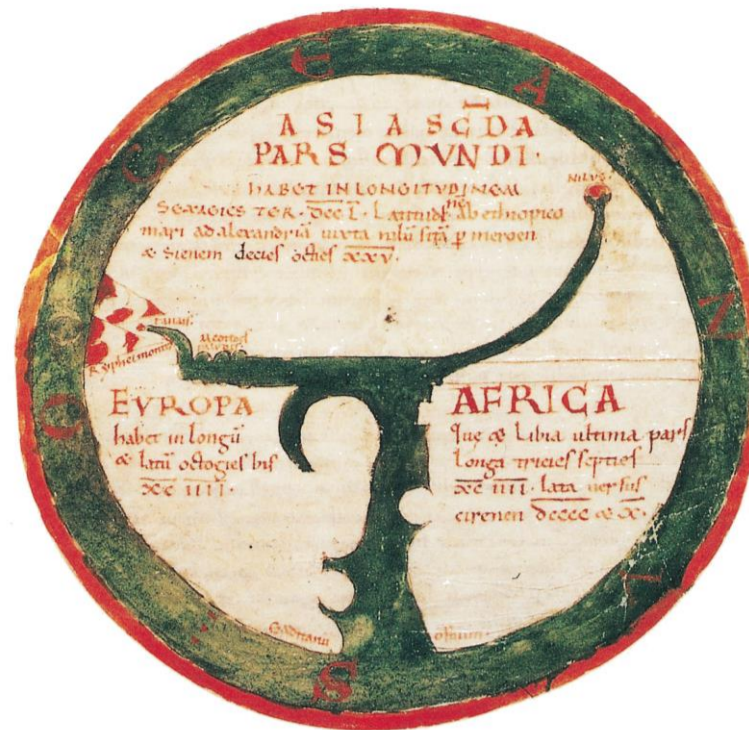 ASIA SC̄DA
PARS MVNDI·
HABET IN LONGITVDINEM
SEXAGIES TER· D̅C̅C̅ L̅· Latitudine ab ethiopico
mari ad alexandriā iuxta nilū sitā p meroen
& sienem decies octies X̅X̅V̅·
NILVS·
tanais·
Meotides
paludes
Riphei montes
EVROPA
habet in longū
& latū octogies bis
X̅C̅ I̅I̅I̅I̅·
AFRICA
Que & Libia ultima pars
longa tricies septies
X̅C̅ I̅I̅I̅I̅· lata uersus
cirenen D̅C̅C̅C̅C̅ & X̅·
Gaditanū
ostium·
O C C E A N
S